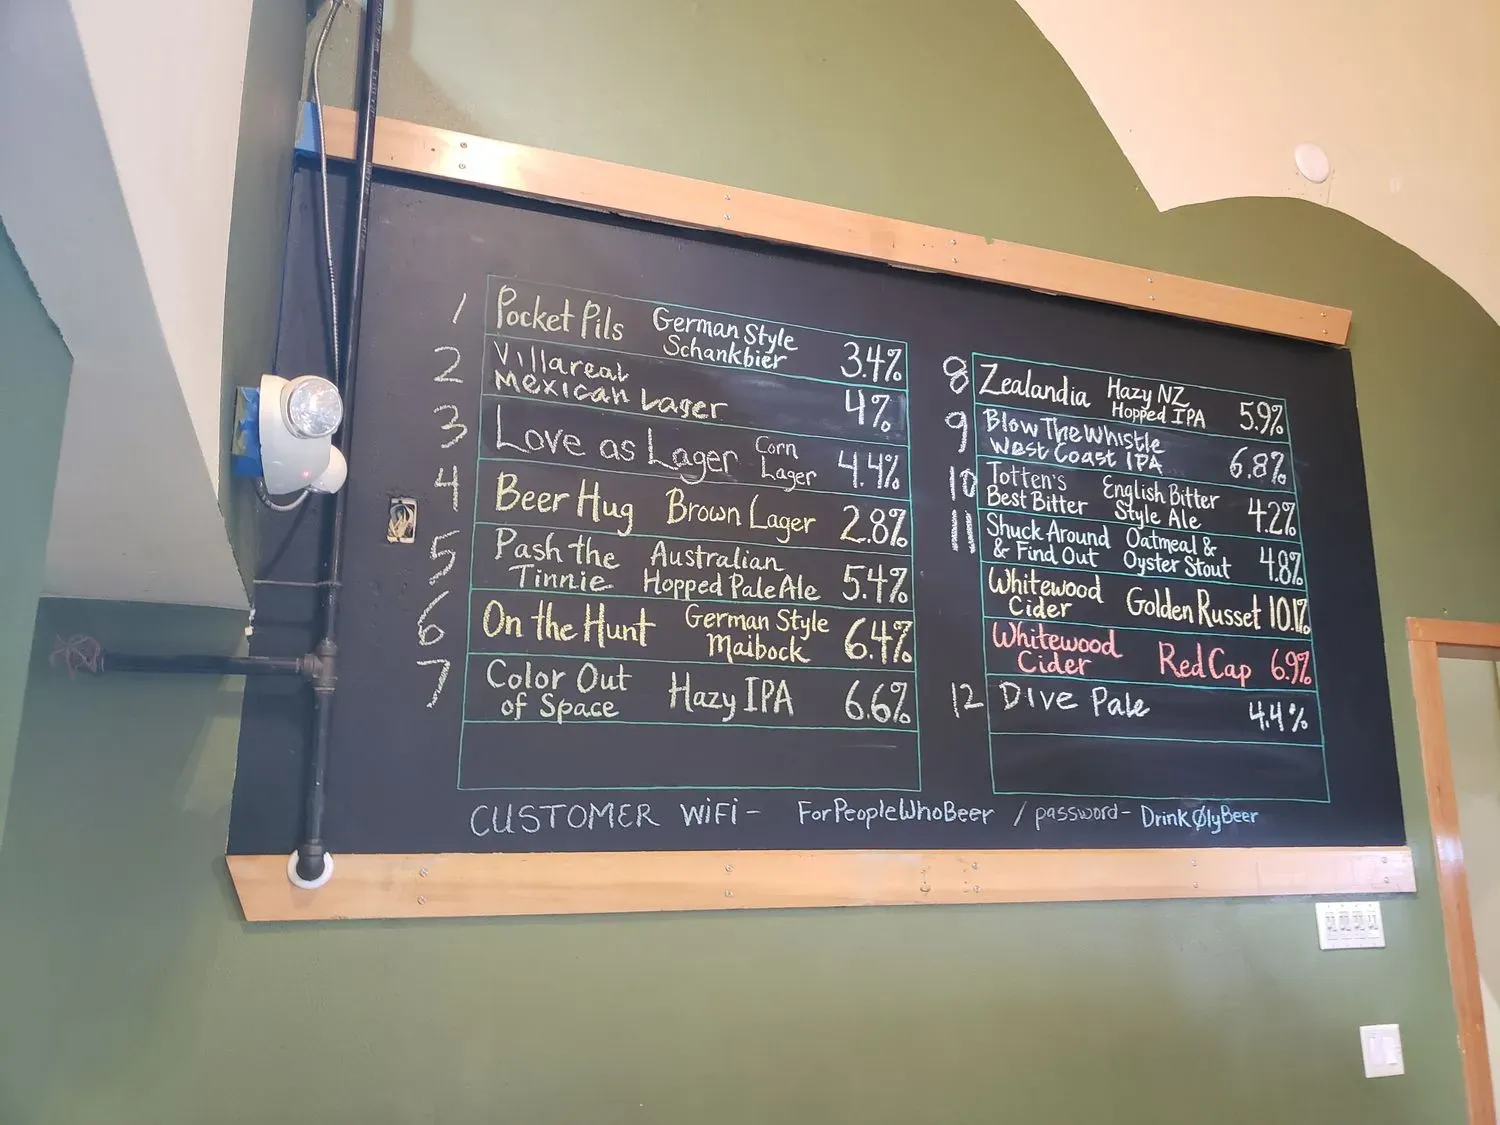 1 Pocket Pils German Style Schankbier 3.4%
2 Villareal Mexican Lager 4%
3 Love as Lager Corn Lager 4.4%
4 Beer Hug Brown Lager 2.8%
5 Pash the Tinnie Australian Hopped Pale Ale 5.4%
6 On the Hunt German Style Maibock 6.4%
7 Color Out of Space Hazy IPA 6.6%
8 Zealandia Hazy NZ Hopped IPA 5.9%
9 Blow The Whistle West Coast IPA 6.8%
10 Totten's Best Bitter English Bitter Style Ale 4.2%
11 Shuck Around & Find Out Oatmeal & Oyster Stout 4.8%
Whitewood Cider Golden Russet 10.1%
Whitewood Cider Red Cap 6.9%
12 Dive Pale 4.4%
CUSTOMER WiFi - ForPeopleWhoBeer / password - DrinkØlyBeer